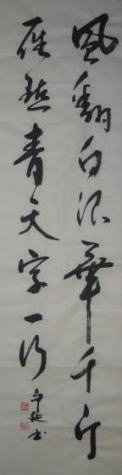 風翻白浪華千片
雁點青天字一行
書